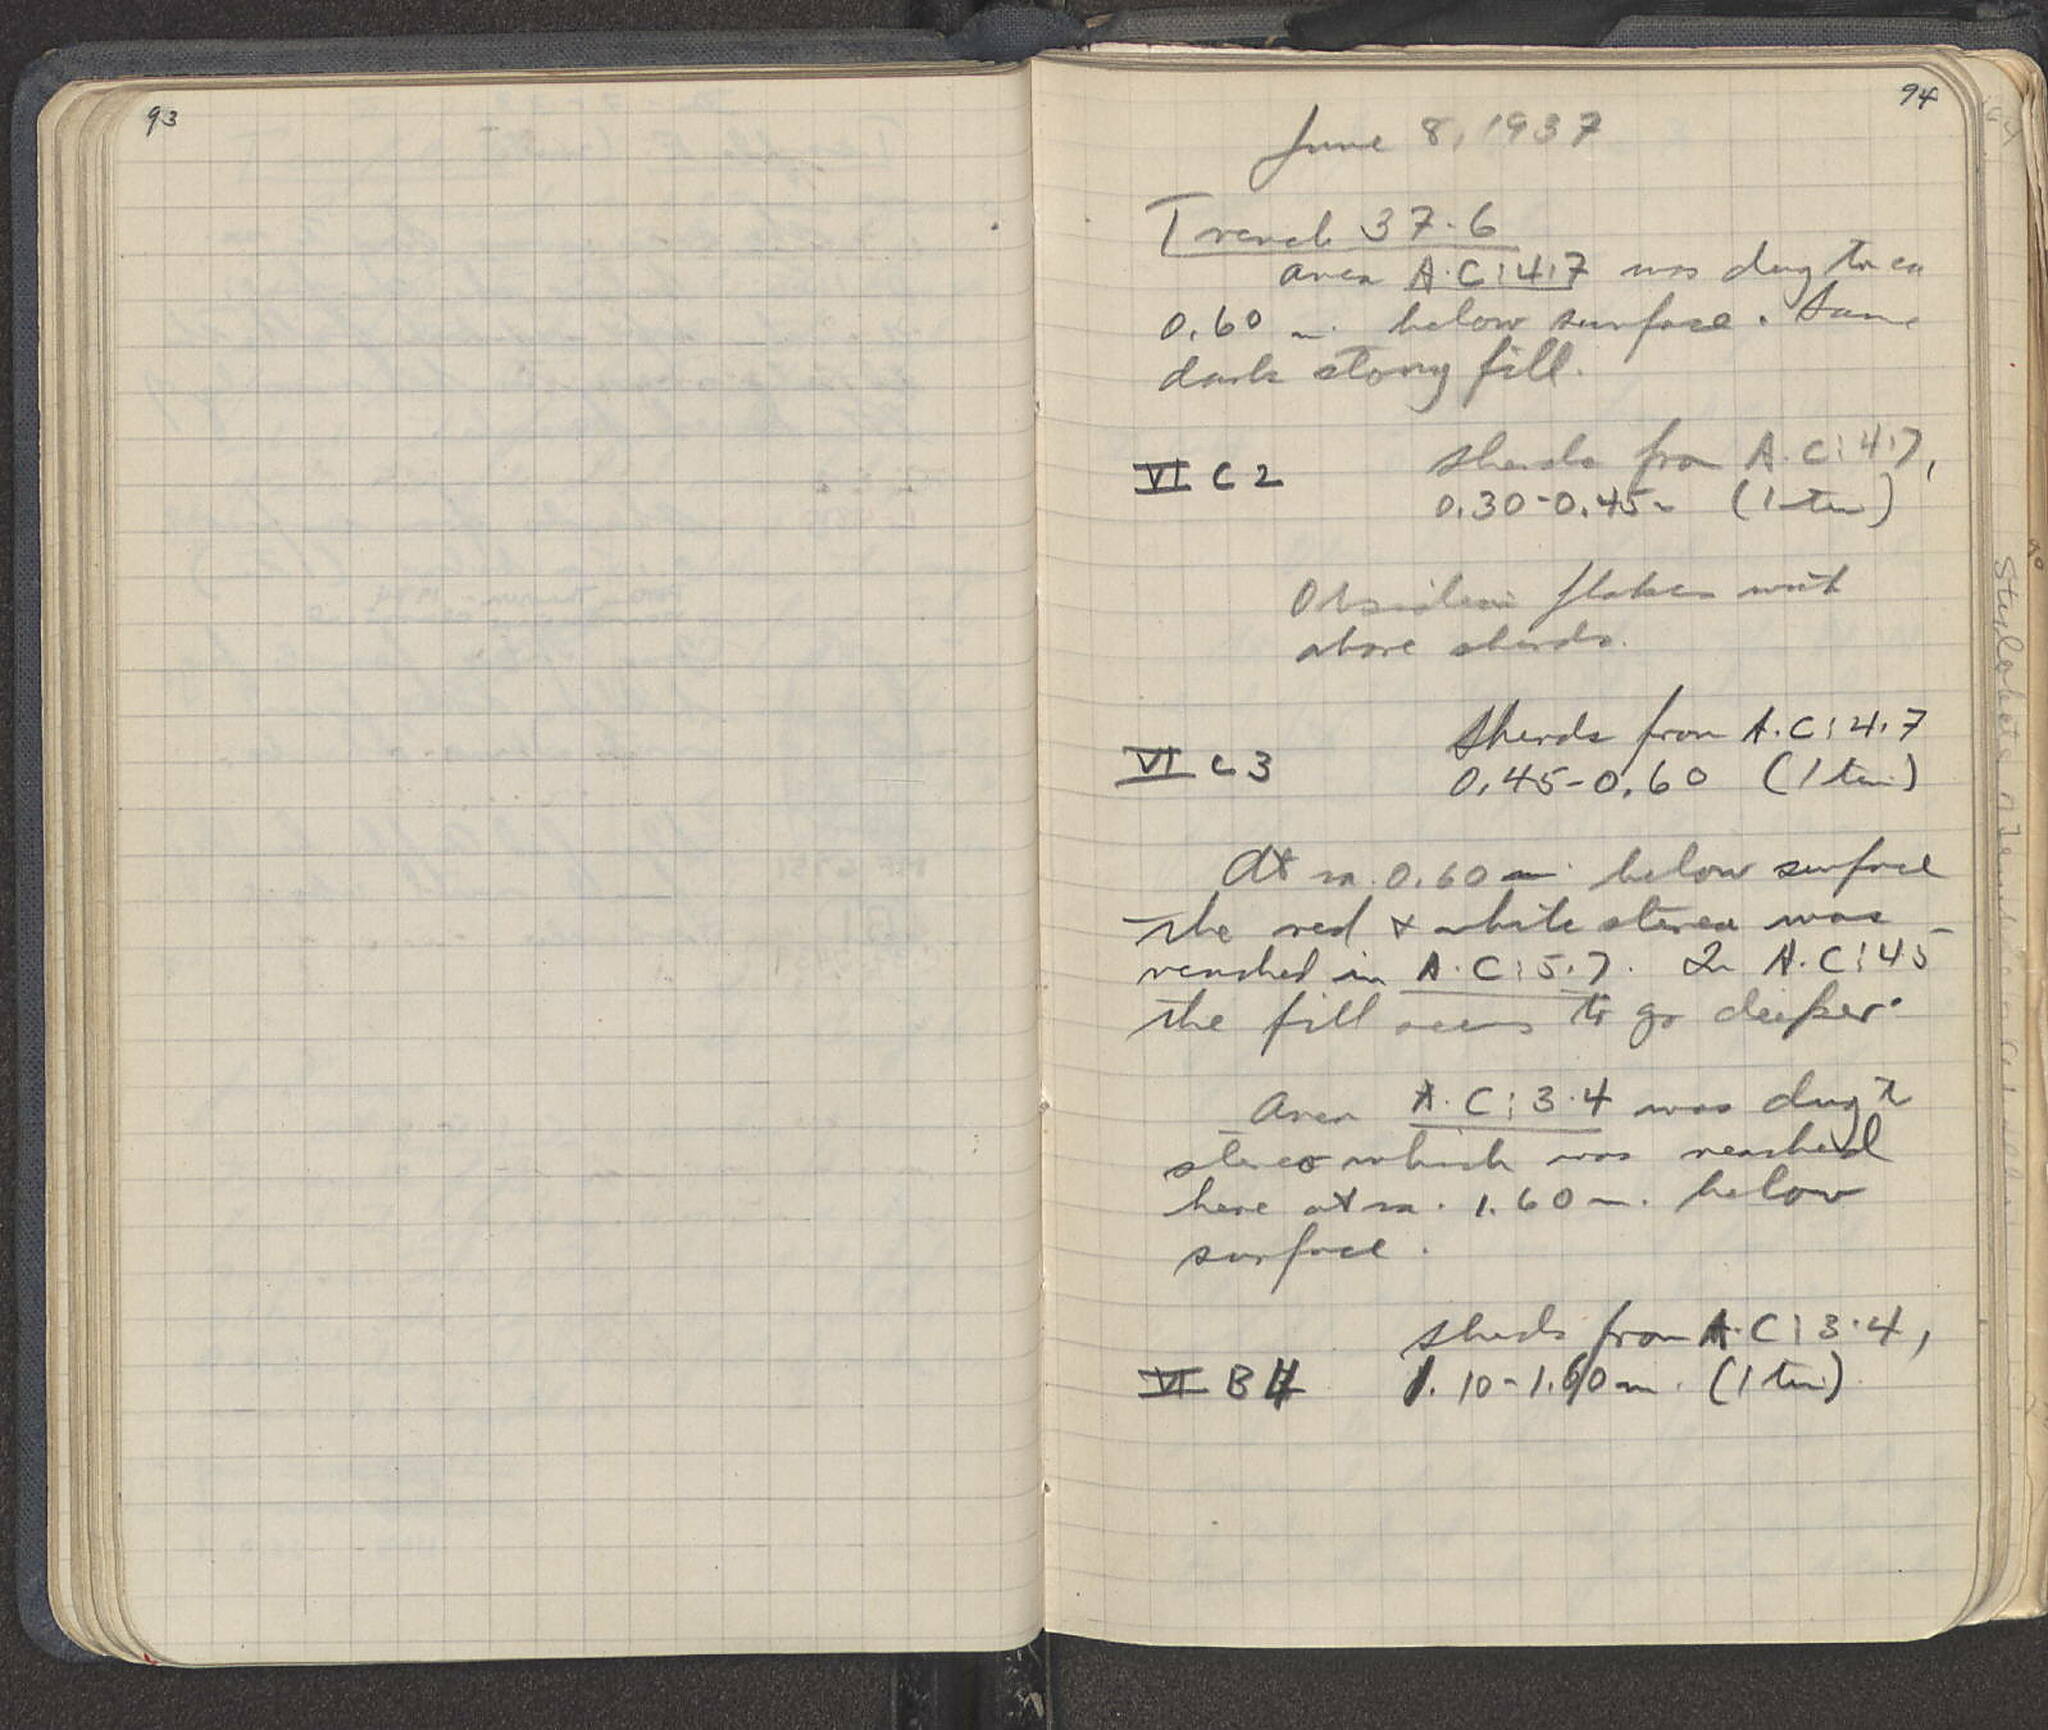 93
94
June 8, 1937
Trench 37.6
Area A.C:4.7 was dug to ca
0.60 m. below surface. Same
dark stony fill.
VI C 2
sherds from A.C:4.7,
0.30-0.45m (1 tin)
Obsidian flakes with
above sherds.
VI C 3
Sherds from A.C:4.7
0.45-0.60 (1 tin)
At ca. 0.60 m. below surface
the red & white stereo was
reached in A.C:5.7. In A.C:45
the fill seems to go deeper.
Area A.C:3.4 was dug to
stereo which was reached
here at ca. 1.60 m. below
surface.
VI B 4
sherds from A.C:3.4,
1.10-1.60 m. (1 tin)